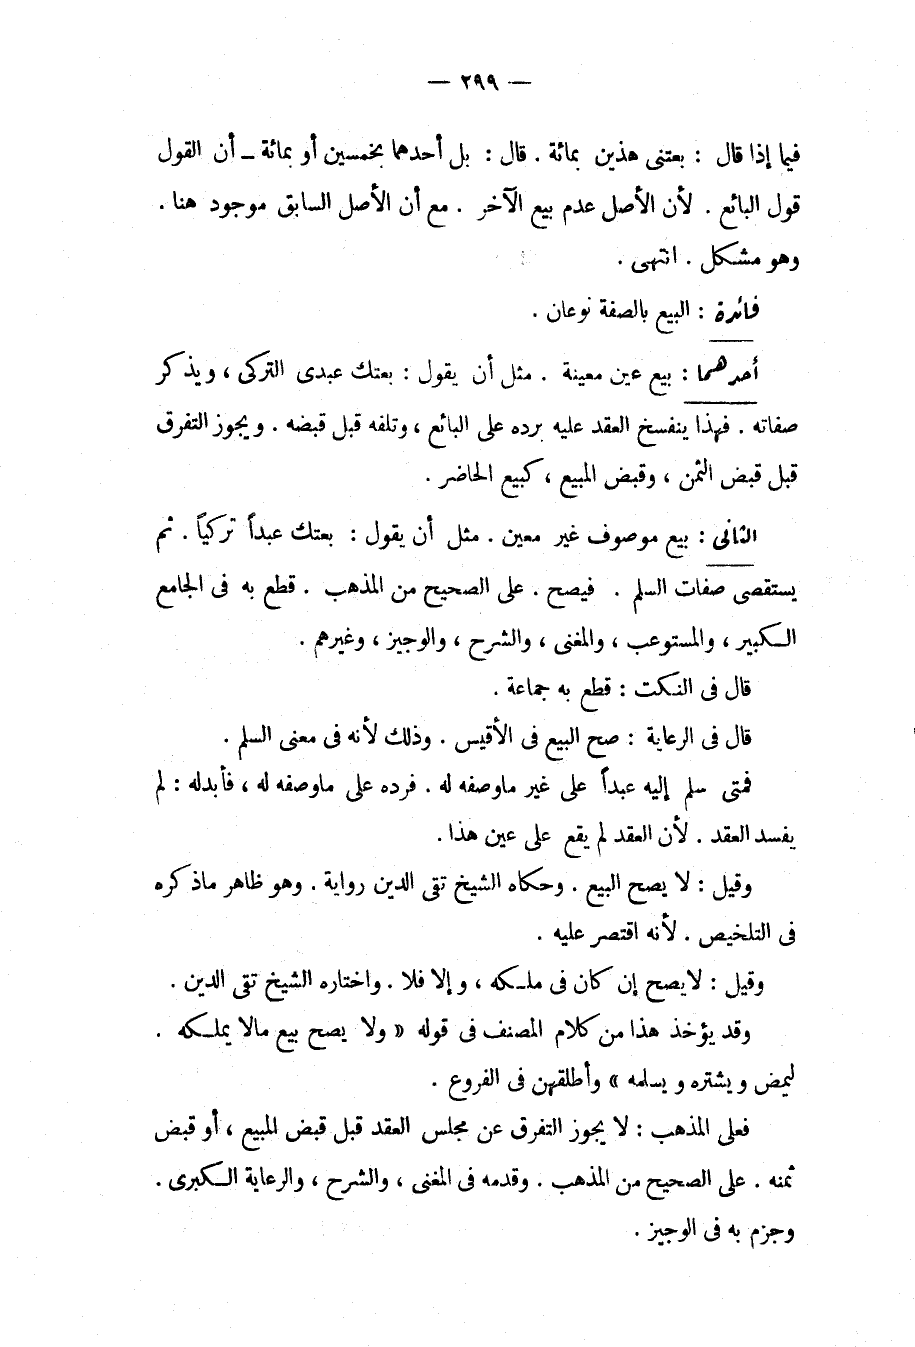 — ٢٩٩ —
فيما إذا قال : بعتنى هذين بمائة . قال : بل أحدهما بخمسين أو بمائة ــ أن القول
قول البائع . لأن الأصل عدم بيع الآخر . مع أن الأصل السابق موجود هنا .
وهو مشكل . انتهى .
فائدة : البيع بالصفة نوعان .
أحدهما : بيع عين معينة . مثل أن يقول : بعتك عبدى التركى ، ويذكر
صفاته . فهذا ينفسخ العقد عليه برده على البائع ، وتلفه قبل قبضه . ويجوز التفرق
قبل قبض الثمن ، وقبض المبيع ، كبيع الحاضر .
الثانى : بيع موصوف غير معين . مثل أن يقول : بعتك عبداً تركياً . ثم
يستقصى صفات السلم . فيصح . على الصحيح من المذهب . قطع به فى الجامع
الكبير ، والمستوعب ، والمغنى ، والشرح ، والوجيز ، وغيرهم .
قال فى النكت : قطع به جماعة .
قال فى الرعاية : صح البيع فى الأقيس . وذلك لأنه فى معنى السلم .
فمتى سلم إليه عبداً على غير ماوصفه له . فرده على ماوصفه له ، فأبدله : لم
يفسد العقد . لأن العقد لم يقع على عين هذا .
وقيل : لا يصح البيع . وحكاه الشيخ تقى الدين رواية . وهو ظاهر ماذكره
فى التلخيص . لأنه اقتصر عليه .
وقيل : لايصح إن كان فى ملكه ، وإلا فلا . واختاره الشيخ تقى الدين .
وقد يؤخذ هذا من كلام المصنف فى قوله « ولا يصح بيع مالا يملكه .
ليمض ويشتره ويسلمه » وأطلقهن فى الفروع .
فعلى المذهب : لا يجوز التفرق عن مجلس العقد قبل قبض المبيع ، أو قبض
ثمنه . على الصحيح من المذهب . وقدمه فى المغنى ، والشرح ، والرعاية الكبرى .
وجزم به فى الوجيز .